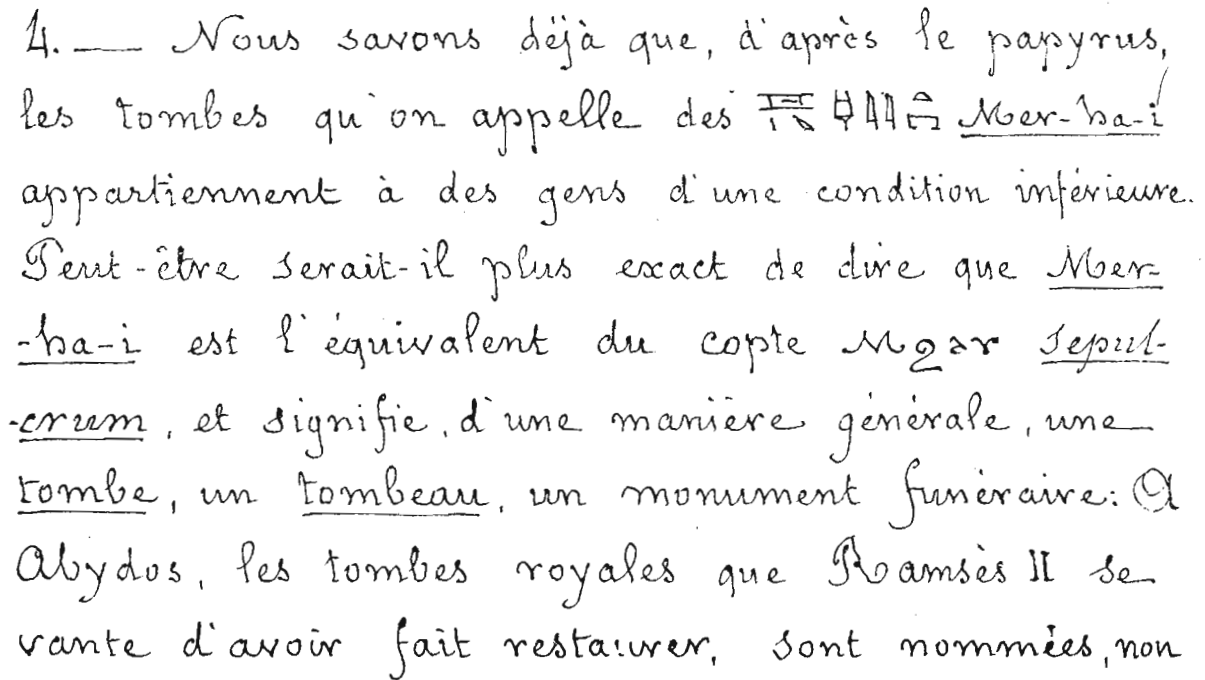 4. — Nous savons déjà que, d'après le papyrus,
les tombes qu'on appelle des Mer-ha-i
appartiennent à des gens d'une condition inférieure.
Peut-être serait-il plus exact de dire que Mer-
-ha-i est l'équivalent du copte ⲙϩⲁⲩ sepul-
-crum, et signifie, d'une manière générale, une
tombe, un tombeau, un monument funéraire: A
Abydos, les tombes royales que Ramsès II se
vante d'avoir fait restaurer, sont nommées, non